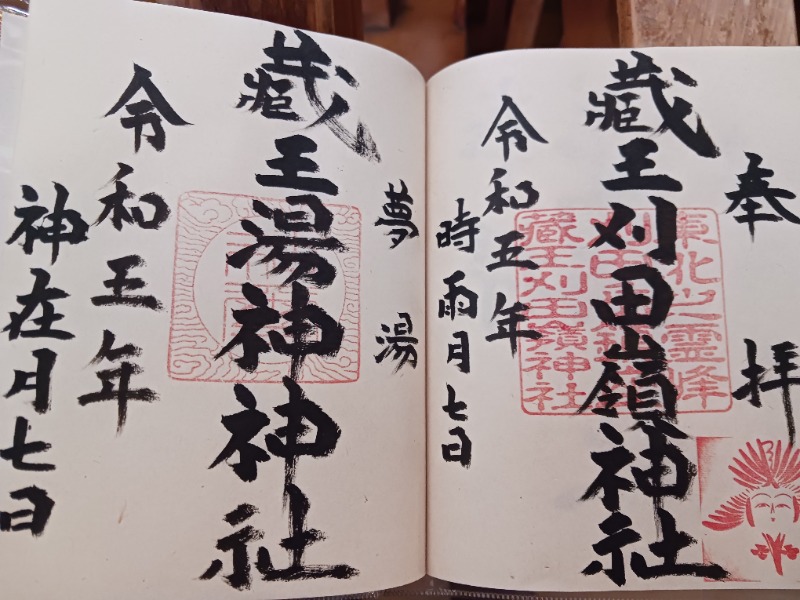 奉拝
藏王刈田嶺神社
東北之霊峰
藏王刈田嶺神社
令和五年
時雨月七日
夢湯
藏王湯神神社
令和五年
神在月七日